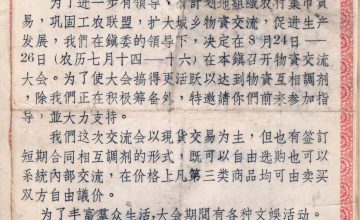 为了进一步有领导、有计划地组织农村集市贸
易，巩固工农联盟，扩大城乡物资交流，促进生产
发展，我们在鎮委的领导下，决定在8月24日—
26日（农历七月十四—十六）在本鎮召开物資交流
大会。为了使大会搞得更活跃，以达到物資互相調剂
，除我们正在积极筹备外，特邀請你们前来参加指
导，並大力支持。
我们这次交流会以現貨交易为主，但也有签訂
短期合同相互調剂的形式，既可以自由选購也可
系統内部交流，在价格上凡第三类商品均可由卖买
双方自由議价。
为了丰富羣众生活，大会期間有各种文娱活动。